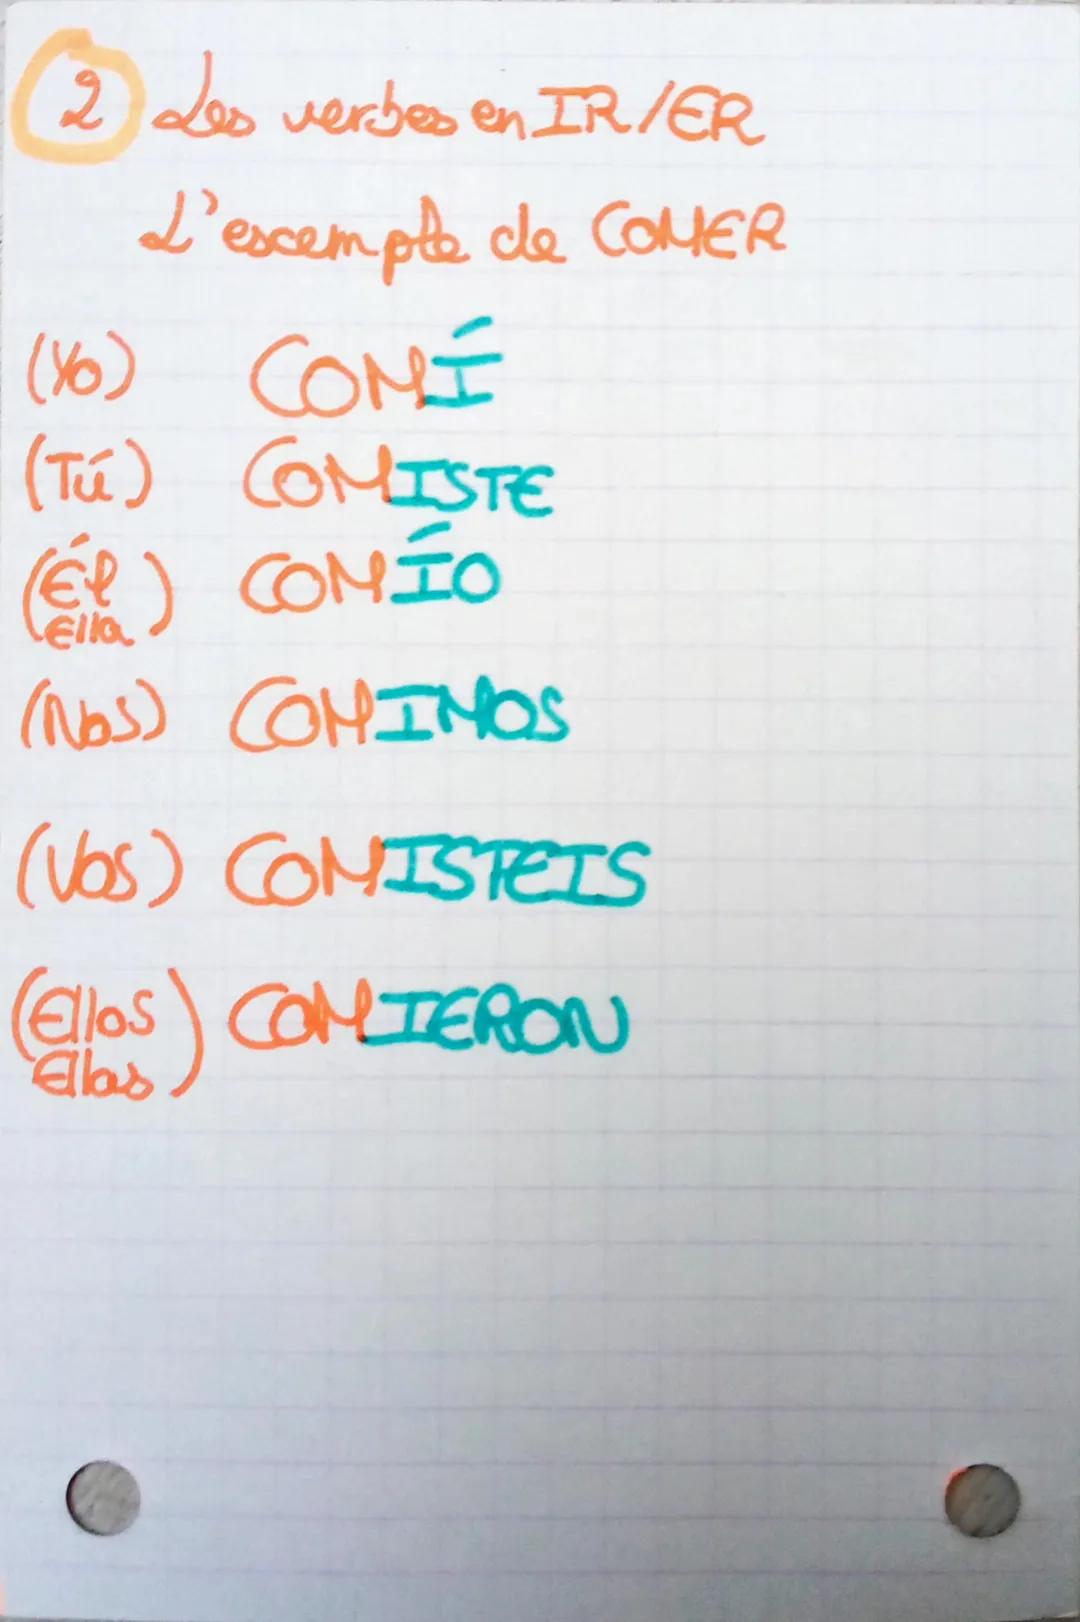 2 Les verbes en IR/ER
L'exemple de COMER
(Yo) COMÍ
(Tú) COMISTE
(Él Ella) COMÍO
(Nos) COMIMOS
(Vos) COMISTEIS
(Ellos Ellas) COMIERON